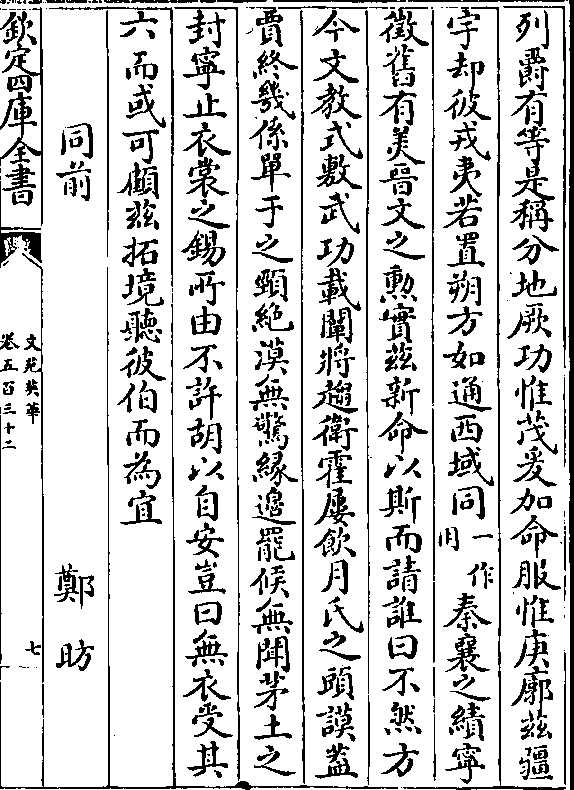 列爵有等是稱分地厥功惟茂爰加命服惟庚廓茲疆
宇却彼戎夷若置朔方如通西域同一作用秦襄之績寧
徵舊有美晉文之勲實茲新命以斯而請誰曰不然方
今文教式敷武功載闡將趨衛霍屢飲月氏之頭謨蓋
賈終幾係單于之頸絶漠無驚緣邊罷候無聞茅土之
封寧止衣裳之錫所由不許胡以自安豈曰無衣受其
六而或可顧茲拓境聽彼伯而為宜
同前 鄭昉
欽定四庫全書
文苑英華
卷五百三十二
七